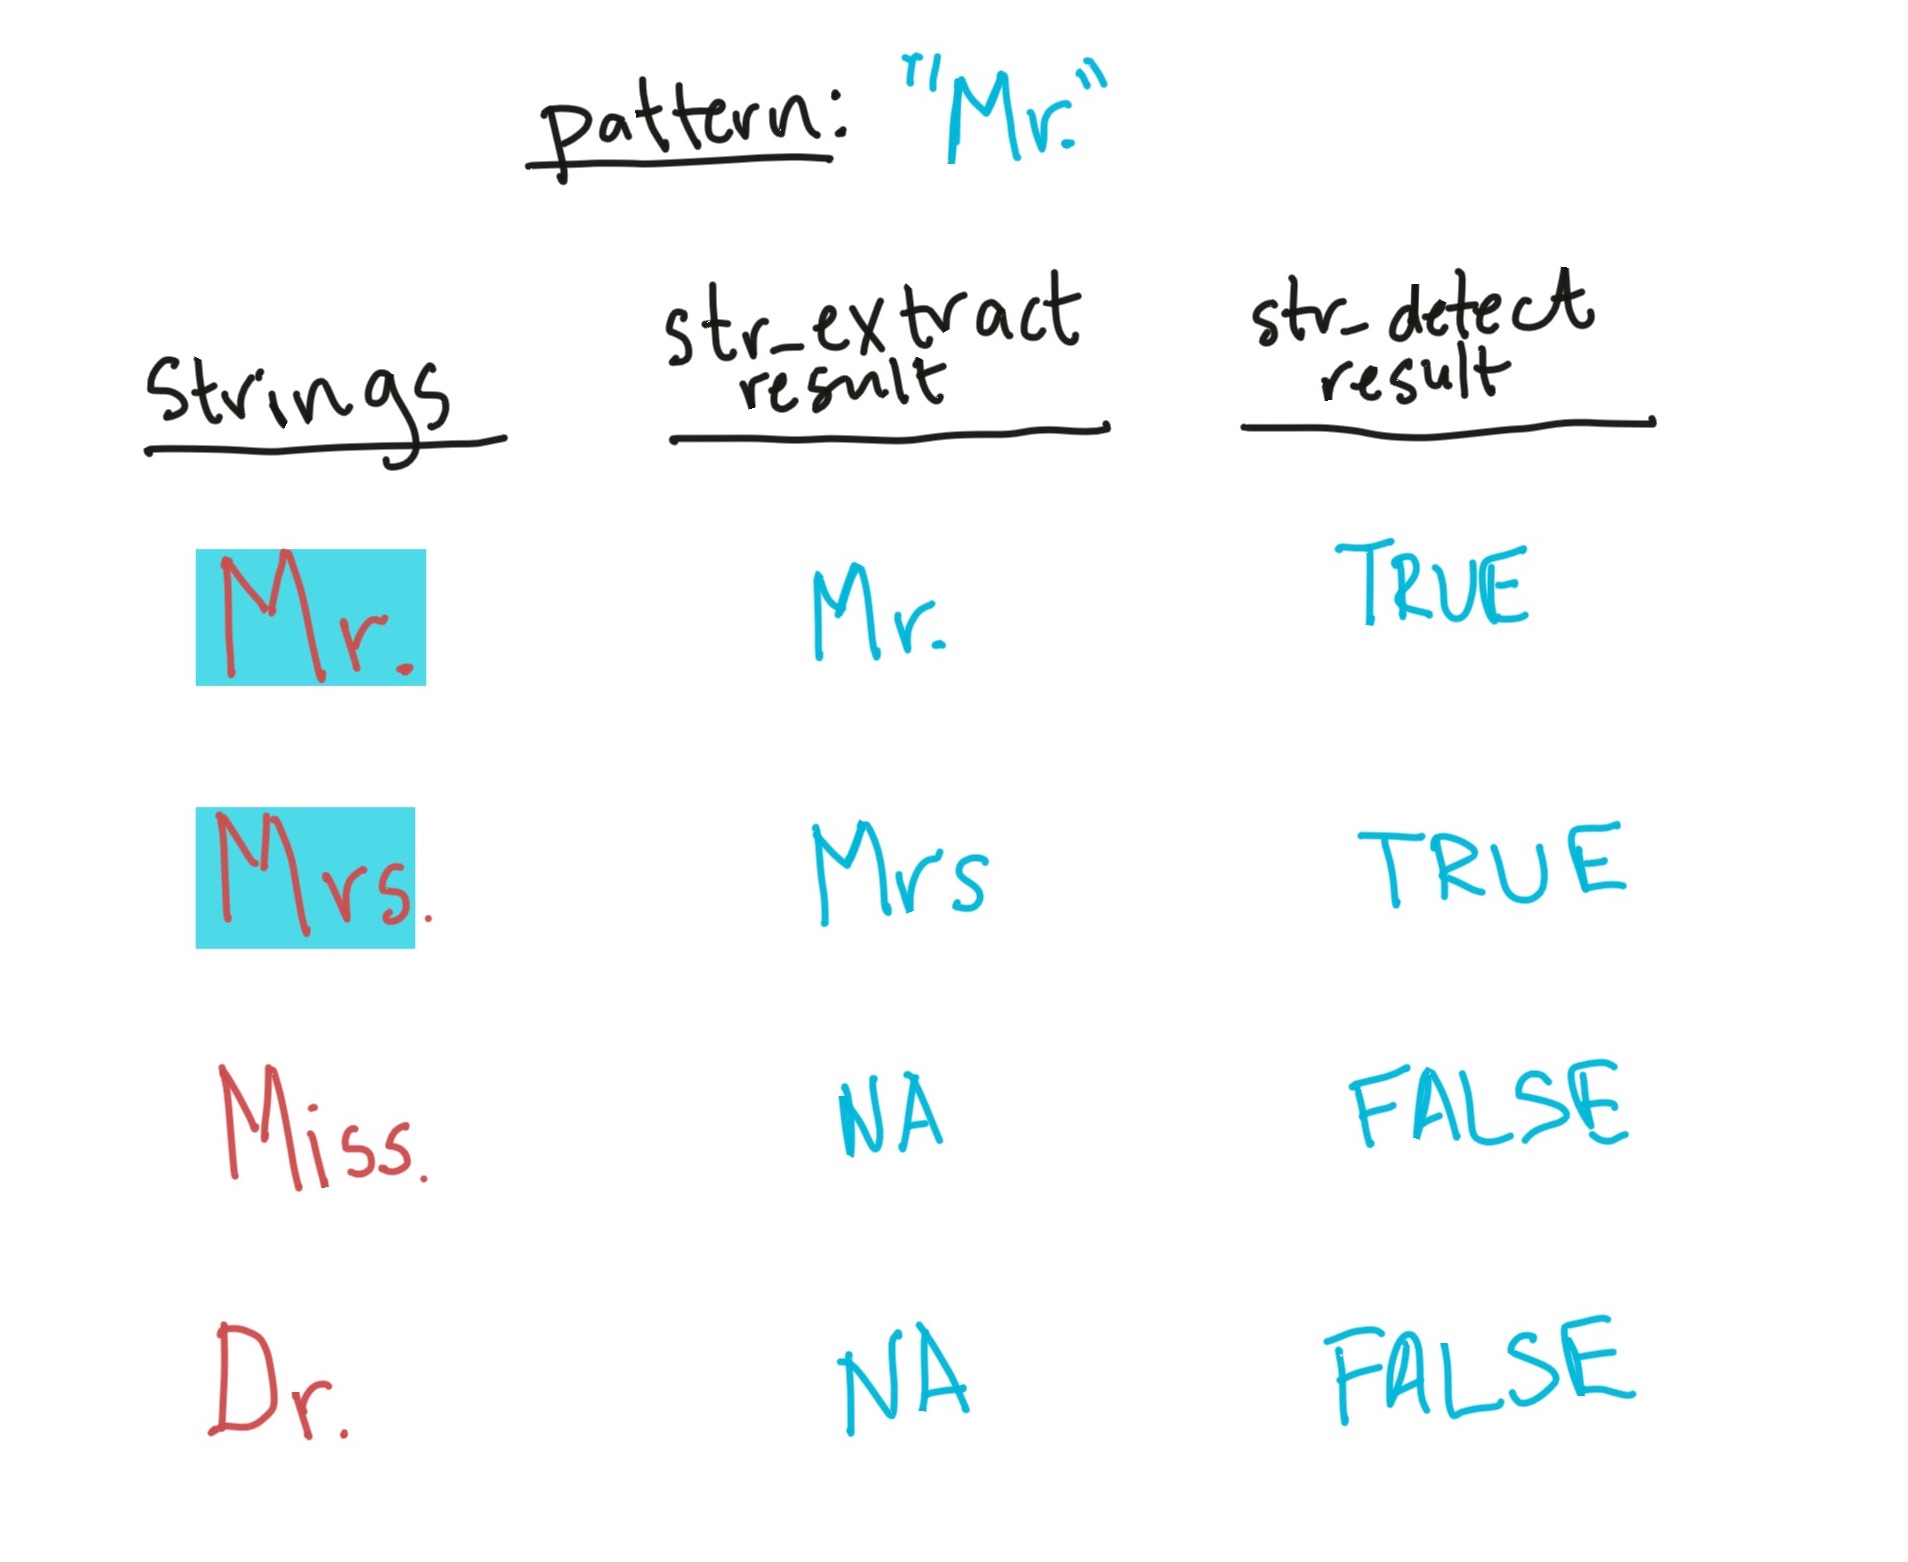 pattern: "Mr."
Strings
str_extract
result
str_detect
result
Mr. Mr. TRUE
Mrs. Mrs TRUE
Miss. NA FALSE
Dr. NA FALSE